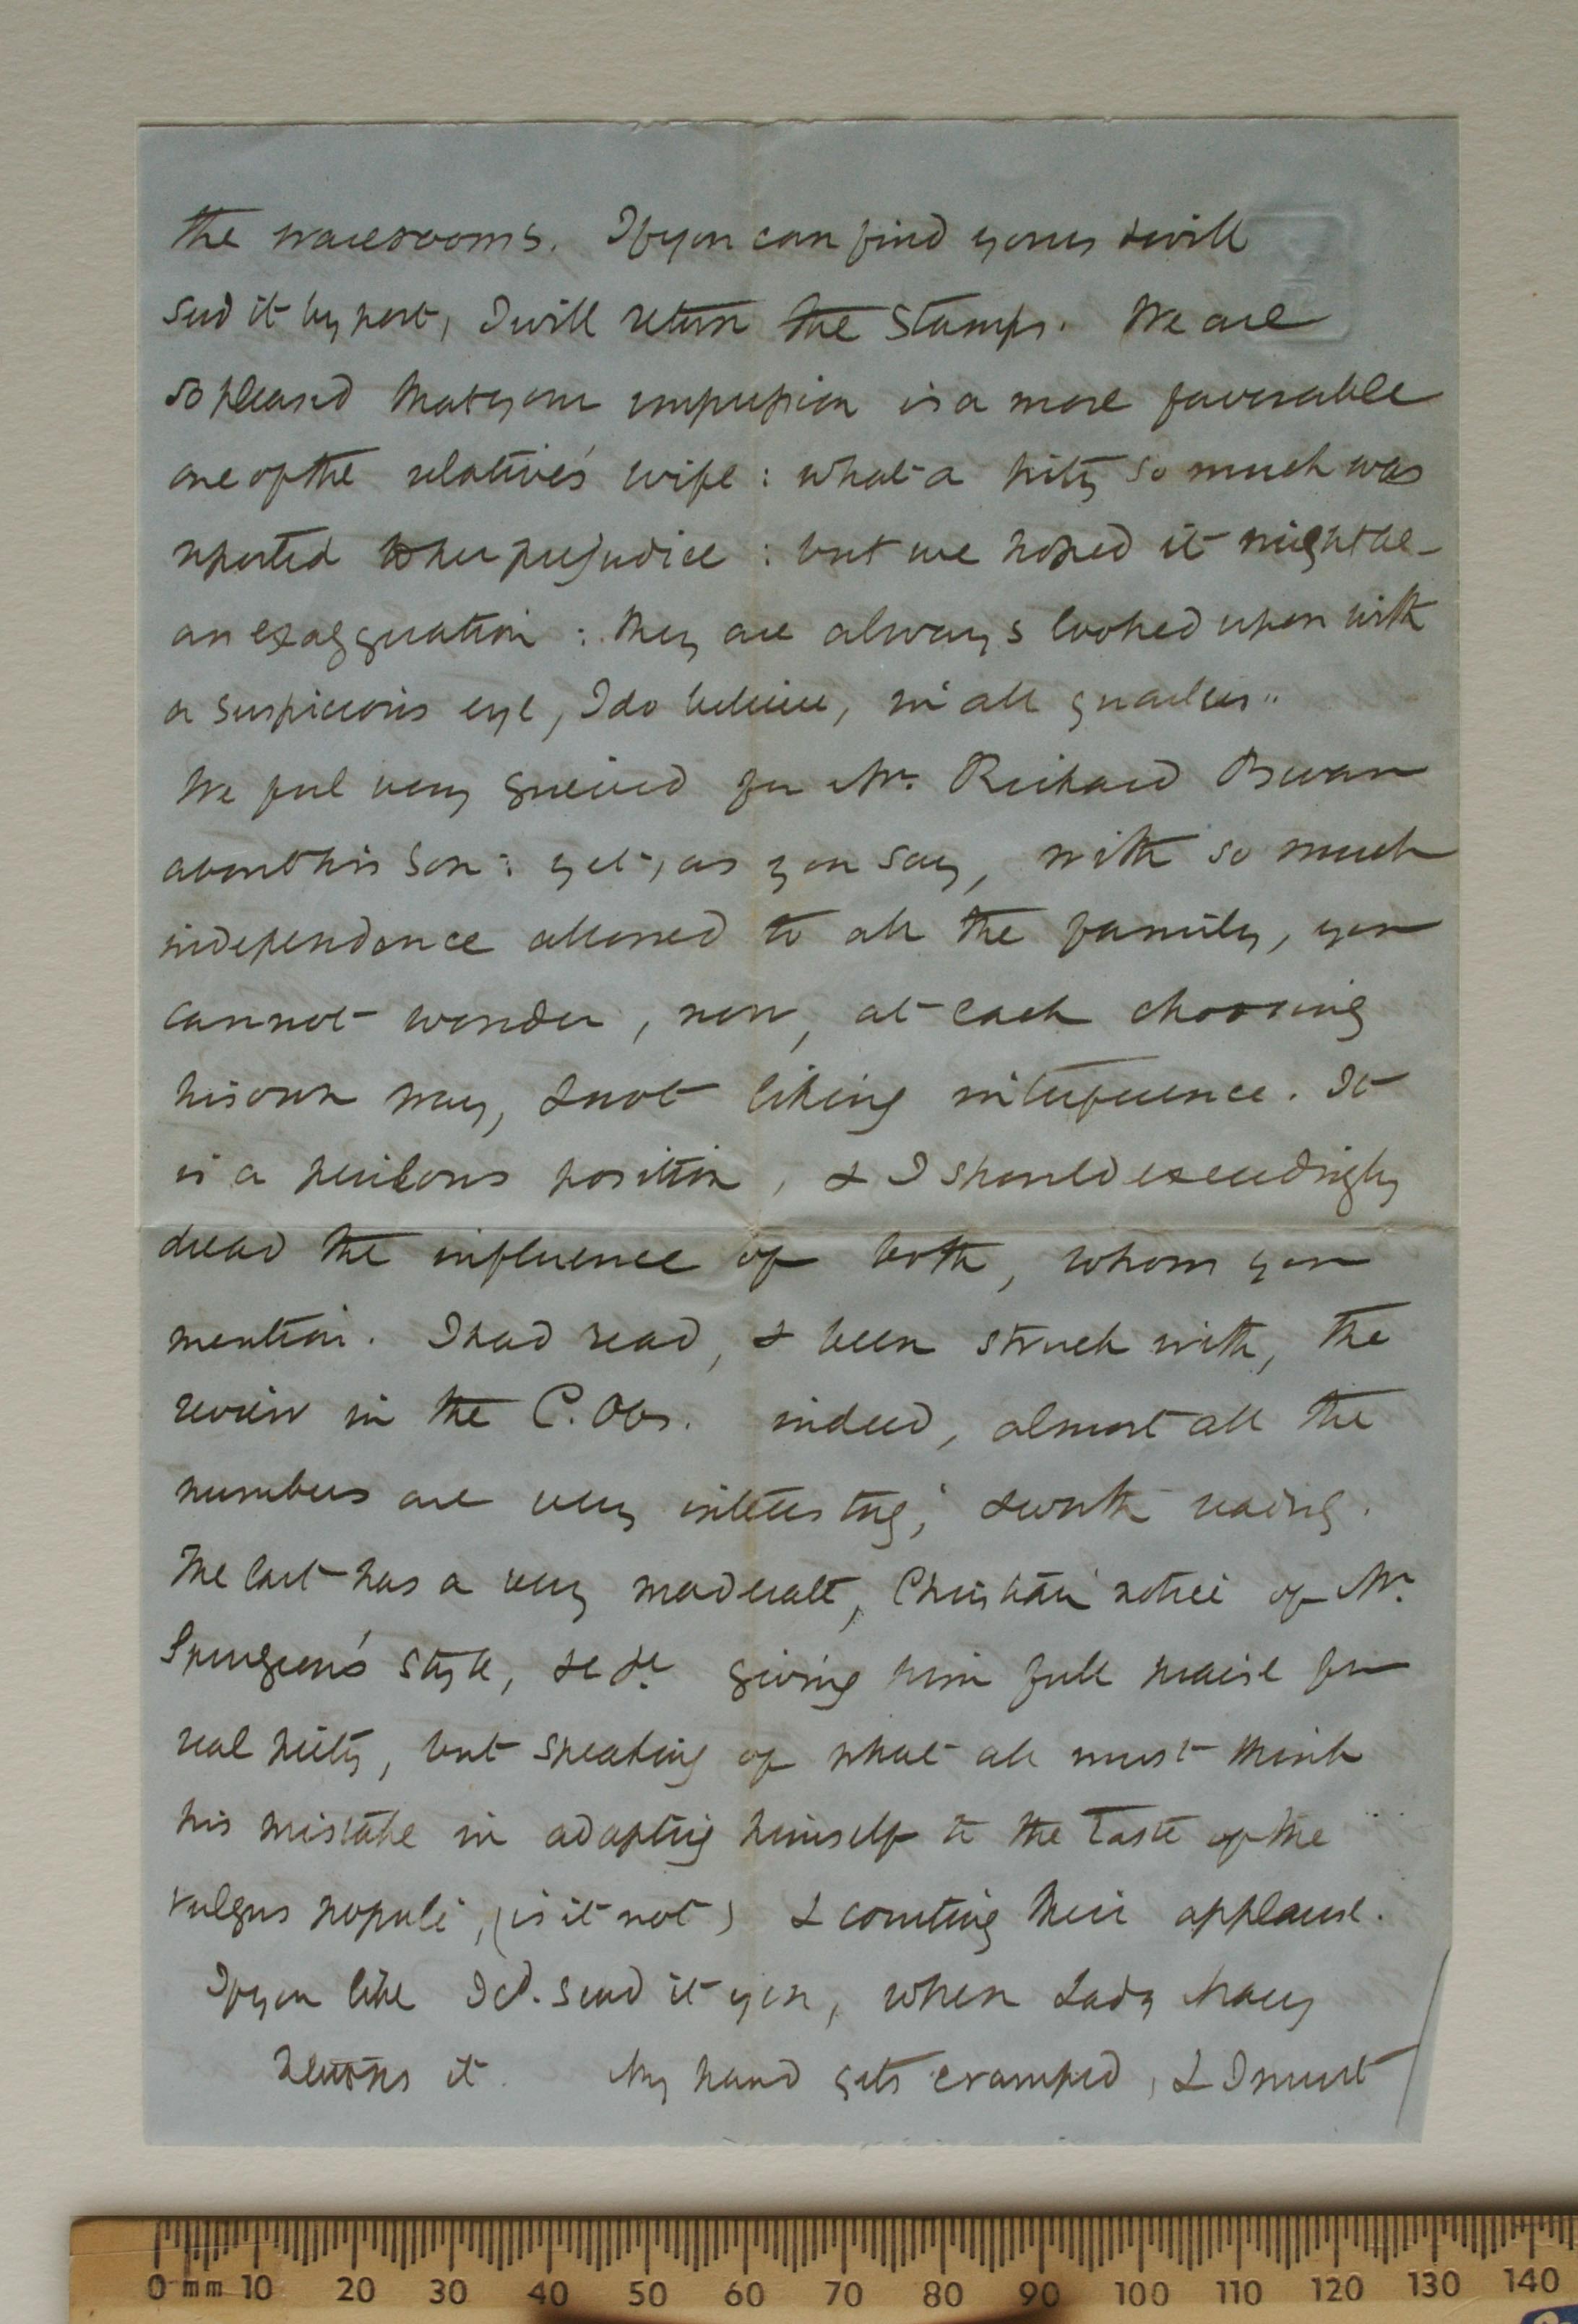 the warerooms. If you can find yours & will
send it by post, I will return the stamps. We are
so pleased that your impression is a more favorable
one of the relative's wife: what a pity so much was
reported to her prejudice: but we hoped it might be
an exaggeration: they are always looked upon with
a suspicious eye, I do believe, in all quarters"
We feel very grieved for Mr. Richard Bevan
about his son: yet, as you say, with so much
independence allowed to all the family, you
cannot wonder, now, at each choosing
his own way, & not liking interference. It
is a perilous position, & I should exceedingly
dread the influence of both, whom you
mention. I had read, & been struck with, the
review in the C. Obs. indeed, almost all the
numbers are very interesting, & worth reading.
The last has a very moderate, Christian notice of Mr.
Spurgeon's style, &c &c. giving him full praise for
real piety, but speaking of what all must think
his mistake in adapting himself to the taste of the
vulgus populi, (is it not) & courting their applause.
If you like I cd. send it you, when Lady Mary
returns it. My hand gets cramped, & I must
0 mm 10 20 30 40 50 60 70 80 90 100 110 120 130 140